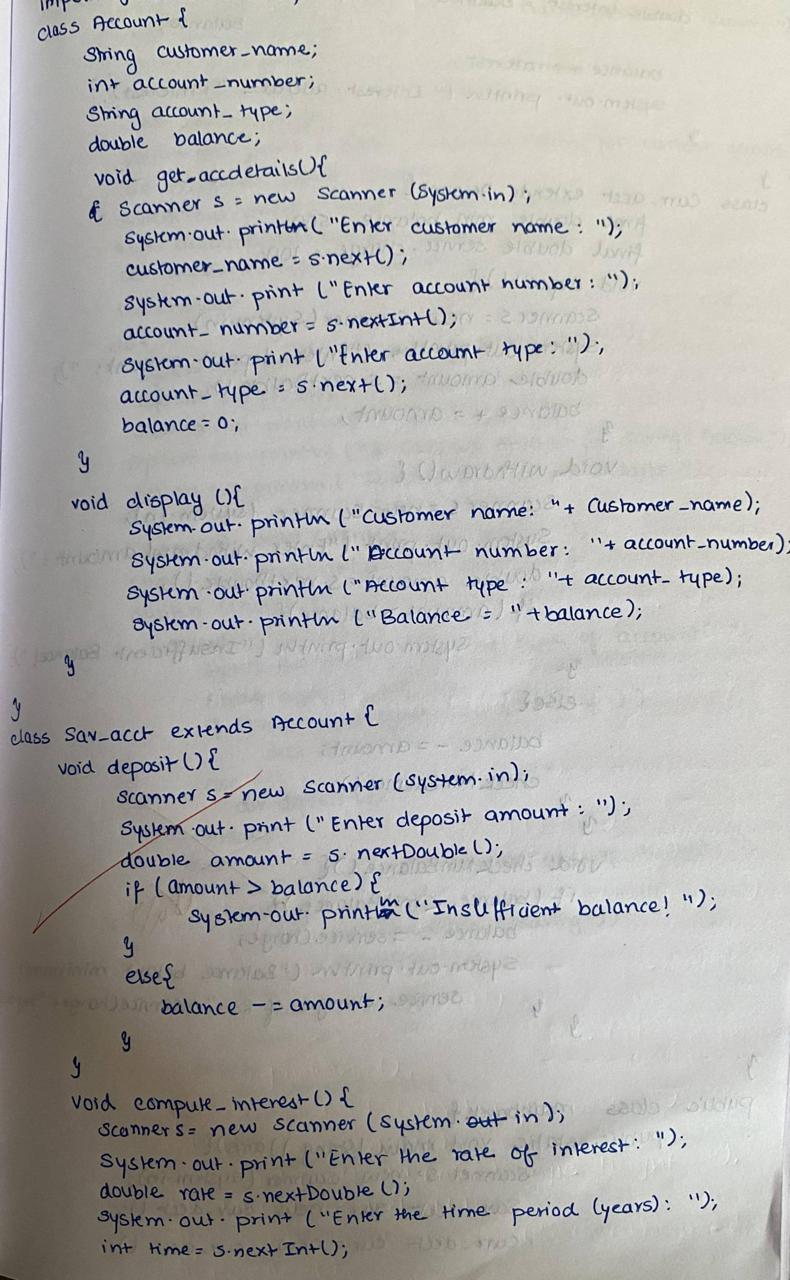 class Account {
String customer_name;
int account_number;
String account_type;
double balance;
void get_accdetails(){
{ Scanner s = new Scanner (System.in);
System.out.println("Enter customer name : ");
customer_name = s.next();
System.out.print ("Enter account number : ");
account_number = s.nextInt();
System.out.print ("Enter account type : ");
account_type = s.next();
balance = 0;
}
void display (){
System.out.println ("Customer name: "+ Customer_name);
System.out.println (" Account number: "+ account_number);
System.out.println ("Account type : "+ account_type);
System.out.println ("Balance = "+balance);
}
}
class Sav_acct extends Account {
void deposit (){
Scanner s = new Scanner (System.in);
System.out.print ("Enter deposit amount : ");
double amount = s.nextDouble();
if (amount > balance) {
System.out.println ("Insufficient balance! ");
}
else{
balance -= amount;
}
}
void compute_interest() {
Scanner s = new Scanner (System.out in);
System.out.print ("Enter the rate of interest: ");
double rate = s.nextDouble ();
System.out.print ("Enter the time period (years) : ");
int time = s.nextInt();